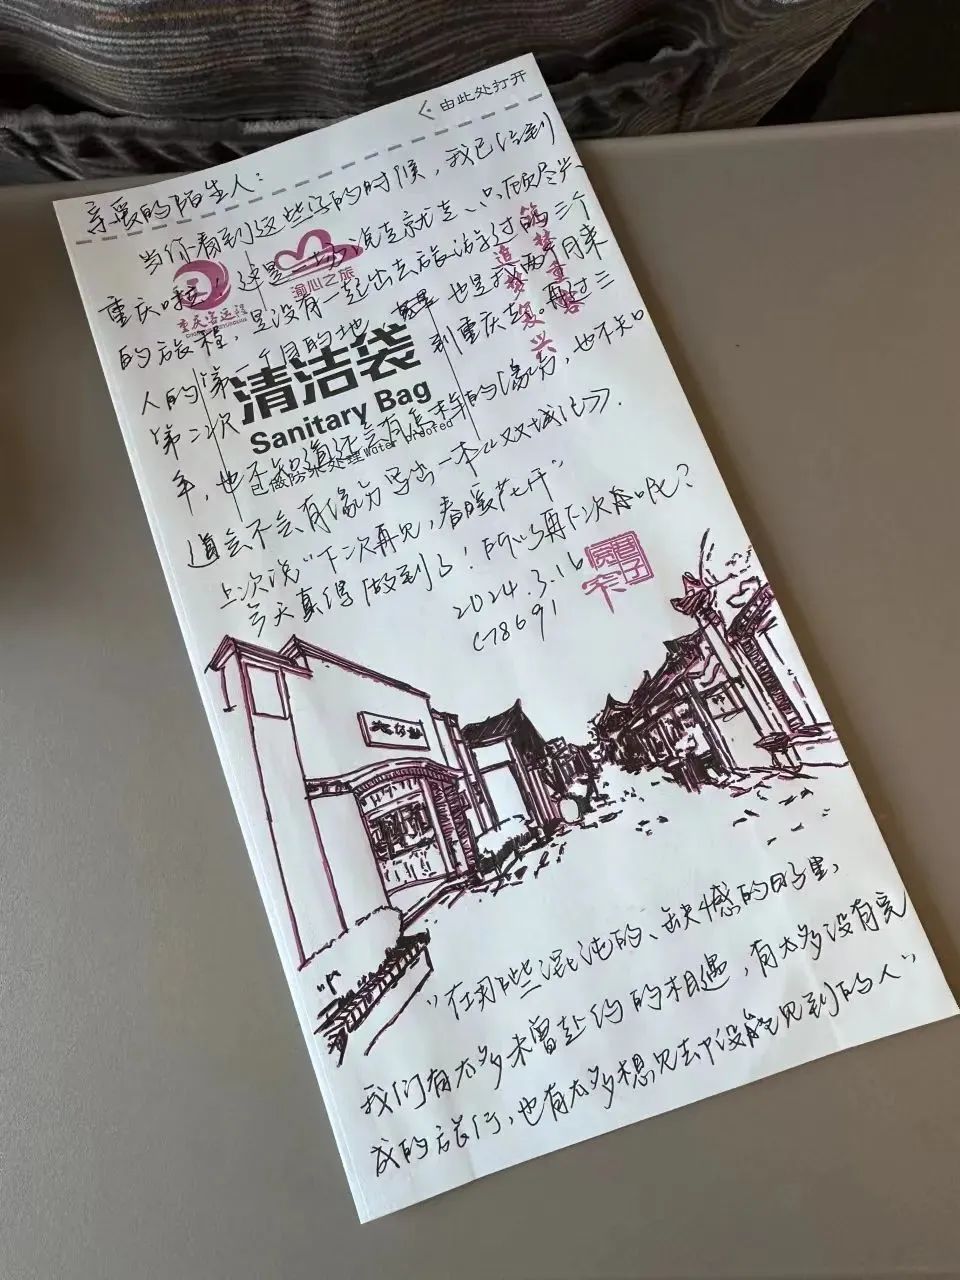 < 由此处打开
亲爱的陌生人：
当你看到这些字的时候，我已经到
重庆啦！这是一场说走就走、只顾尽兴
的旅程，是没有一起出去旅游过的三个
人的第一个目的地，也是我两个月来
第二次到重庆了。再过三
年，也不知道还会有的缘分，也不知
道会不会有缘分写出一本《双城记》.
上次说“下次再见，春暖花开”
今天真得做到了！所以再下次春吧？
2024.3.16
C78691
渝心之旅
重庆客运段
清洁袋
Sanitary Bag
已做防水处理 Water proofed
筑梦重客
追梦复兴
君子
“在那些混沌的、缺憾的日子里，
我们有太多未曾赴约的相遇，有太多没有完
成的旅行，也有太多想见却没能见到的人”